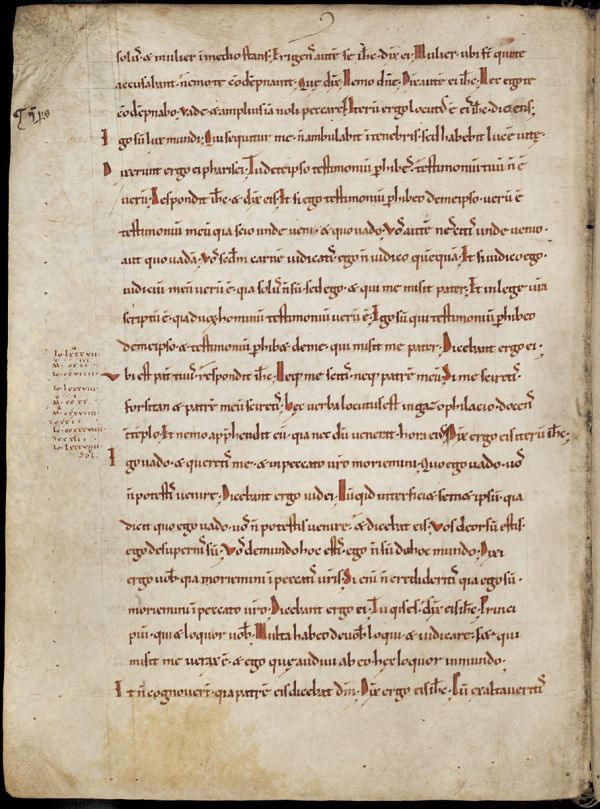 solus & mulier in medio stans. Erigens autē se ihc̄ dix̄ ei. Mulier ubi sn̄t qui te
accusabant. nemo te cōdēpnauit. Que dix̄. Nemo dn̄e. Dix̄ autē ei ihc̄. Nec ego te
cōdēpnabo. uade & amplius iā noli peccare. Iterū ergo locutus ē eis ihc̄ dicens.
Ego sū lux mundi. Qui sequitur me n̄ ambulabit ī tenebris. sed habebit lucē uitę.
Dixerunt ergo ei pharisei. Tu de te ipso testimoniū phibes. testimoniū tuū n̄ ē
uerū. Respondit ihc̄ & dix̄ eis. Et si ego testimoniū phibeo de me ipso. uerū ē
testimoniū meū quia scio unde ueni & quo uado. Vos autē nescitis unde uenio.
aut quo uadā. Vos scdm̄ carnē iudicatis. ego n̄ iudico quēquā. Et si iudico ego.
iudiciū meū uerū ē. qia solus n̄ sū. sed ego & qui me misit pater. Et in lege ur̄a
scriptū ē. qia duoȝ hominū testimoniū uerū ē. Ego sū qui testimoniū phibeo
de me ipso & testimoniū phib& de me. qui misit me pater. Dicebant ergo ei.
Vbi est pat̄ tuus. respondit ihc̄. Neq; me scitis. neq; patrē meū. Si me sciretis.
forsitan & patrē meū sciretis. Hec uerba locutus est in gazophilacio. docens
ī tēplo. Et nemo apphendit eū. qia nec dū uenerat hora eius. Dix̄ ergo eis iterū ihc̄.
Ego uado. & queretis me. & in peccato ur̄o moriemini. Quo ego uado. uos
n̄ potestis uenire. Dicebant ergo iudei. Nūqid interfici& sem&ipsū. qia
dicit quo ego uado. uos n̄ potestis uenire. & dicebat eis. Vos deorsū estis.
ego de supernis sū. Vos de mundo hoc estis. ego n̄ sū de hoc mundo. Dixi
ergo uob̄. qia moriemini ī peccatis ur̄is. Si enī n̄ credideritis qia ego sū.
moriemini ī peccato ur̄o. Dicebant ergo ei. Tu qis es. dix̄ eis ihc̄. Princi
piū. qui & loquor uob̄. Multa habeo de uob̄ loqui & iudicare. sed qui
misit me uerax ē. & ego que audiui ab eo hec loquor in mundo.
Et n̄ cognouert̄. qia patrē eis dicebat dm̄. Dix̄ ergo eis ihc̄. Cū exaltaueritis